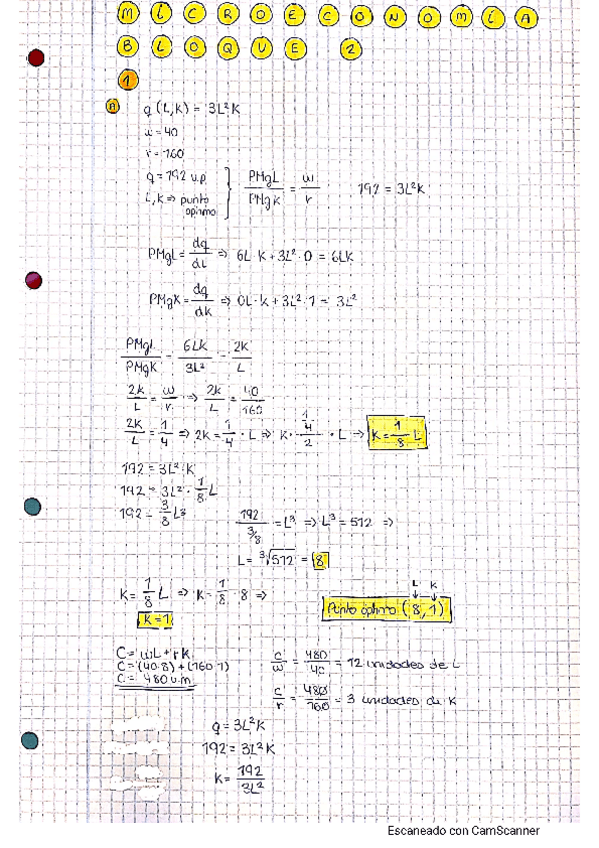 MICROECONOMÍA
BLOQUE 2
1
A
q(L,K) = 3L²K
w = 40
r = 160
q = 192 u.p
L, K ⇒ punto optimo
PMgL/PMgK = w/r
192 = 3L²K
PMgL = dq/dL ⇒ 6L·K + 3L²·0 = 6LK
PMgK = dq/dK ⇒ 0L·K + 3L²·1 = 3L²
PMgL/PMgK = 6LK/3L² = 2K/L
2K/L = w/r ⇒ 2K/L = 40/160
2K/L = 1/4 ⇒ 2K = 1/4 · L ⇒ K · 1/4/2 · L ⇒ K = 1/8 L
192 = 3L²·K
192 = 3L² · 1/8 L
192 = 3/8 L³
192/3/8 = L³ ⇒ L³ = 512 ⇒
L = ³√512 = 8
K = 1/8 L ⇒ K = 1/8 · 8 ⇒
K = 1
L K
Punto óptimo (8,1)
C = wL + rK
C = (40·8) + (160·1)
C = 480 u.m
C/w = 480/40 = 12 unidades de L
C/r = 480/160 = 3 unidades de K
q = 3L²K
192 = 3L²K
K = 192/3L²
Escaneado con CamScanner